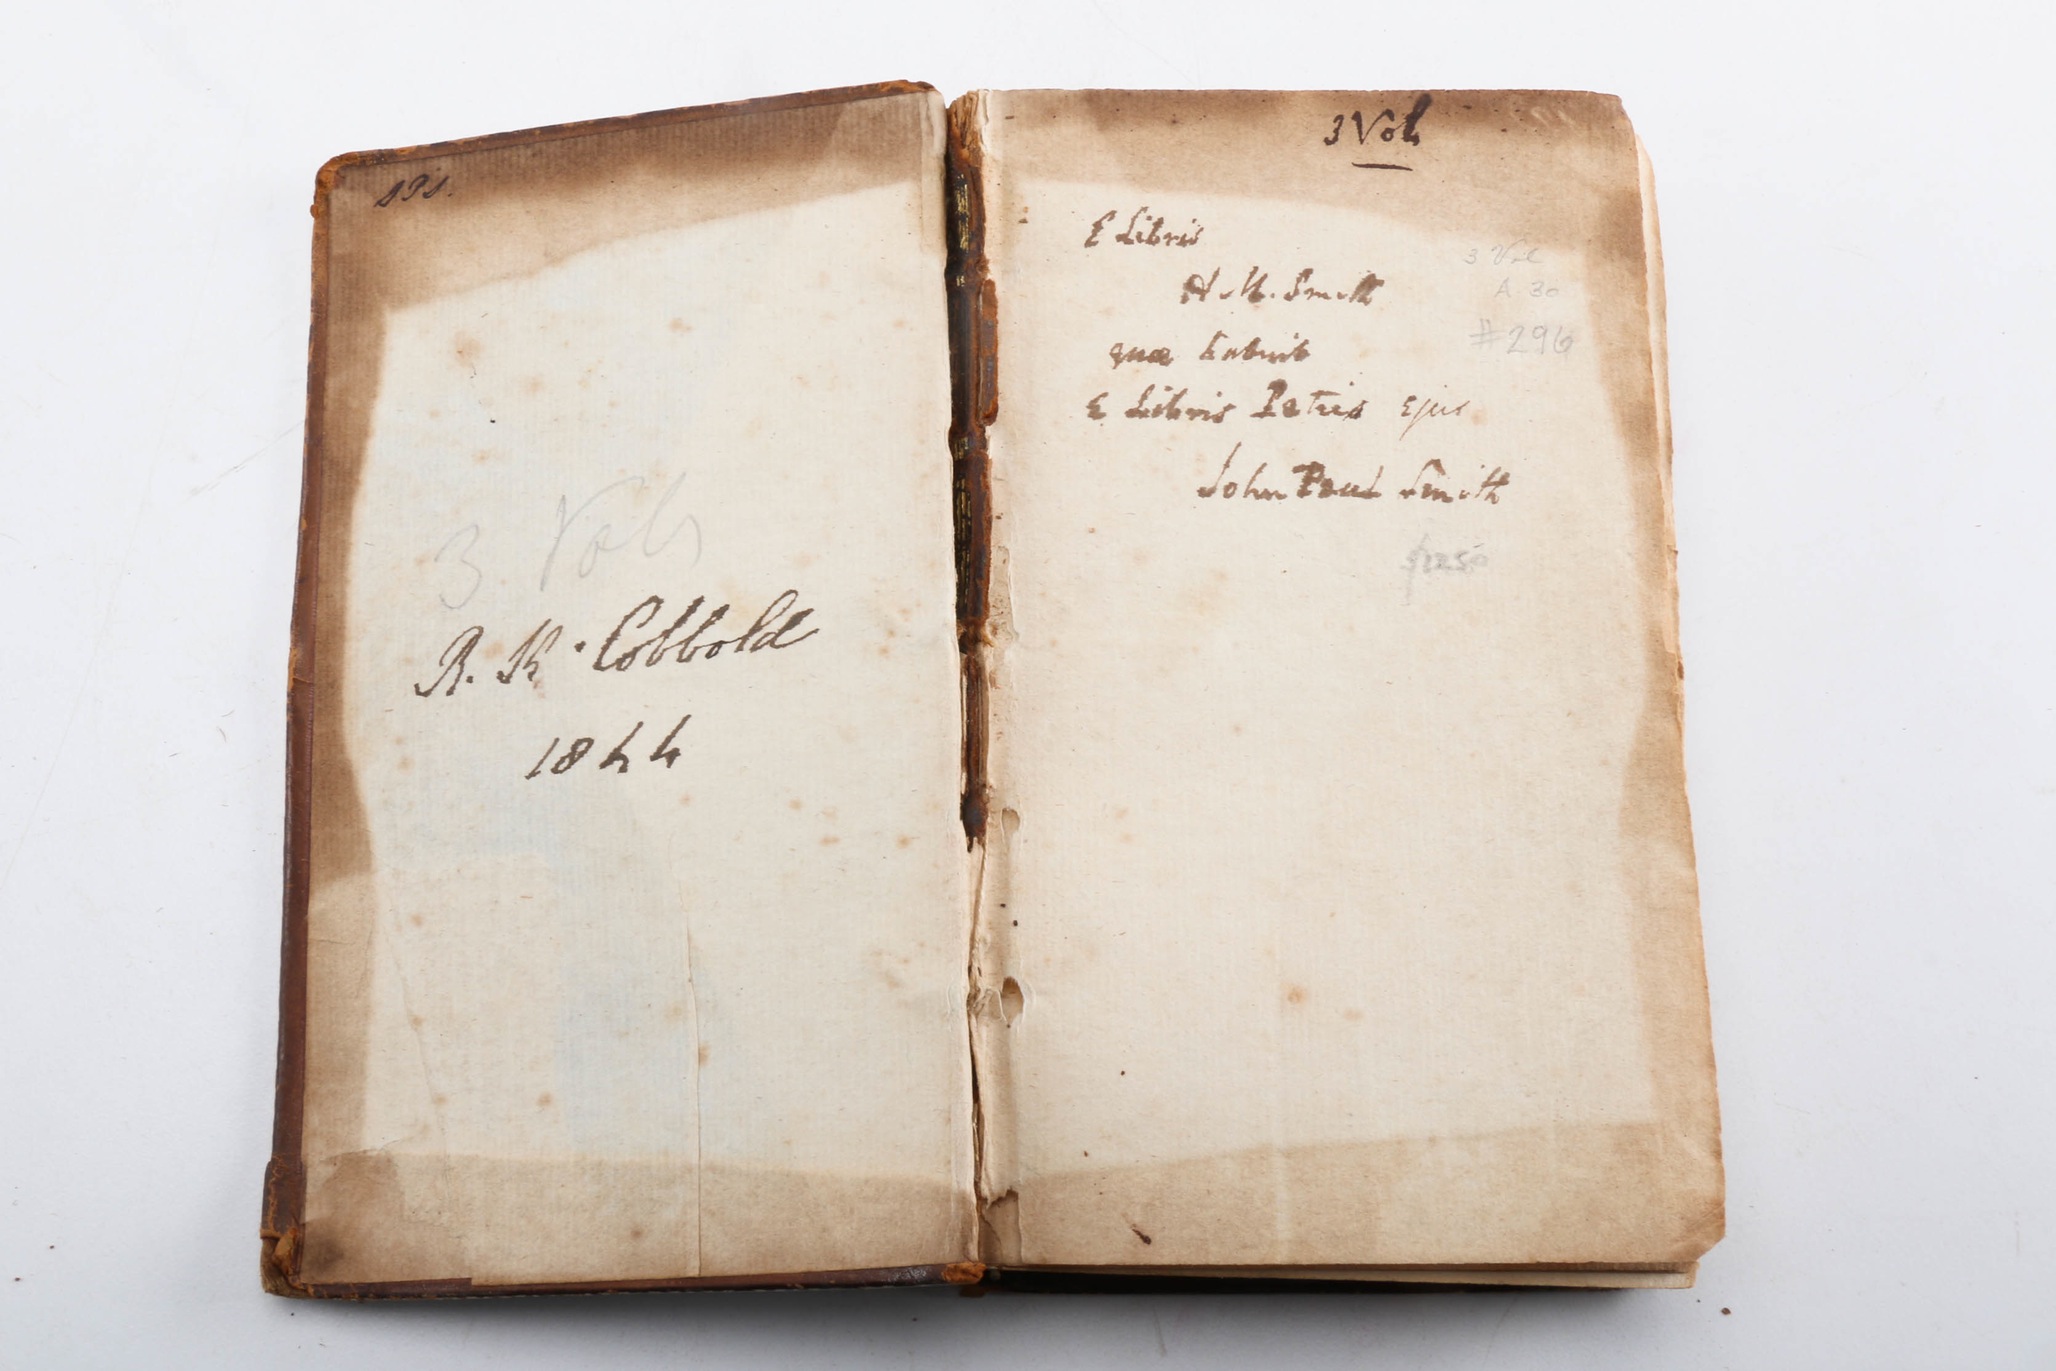 JPS.
3 Vols
R. K. Cobbold
1844
3 Vols
E Libris
H. M. Smith
quæ habuit
E Libris Patris ejus
John Paul Smith
3 Vol
A 30
#296